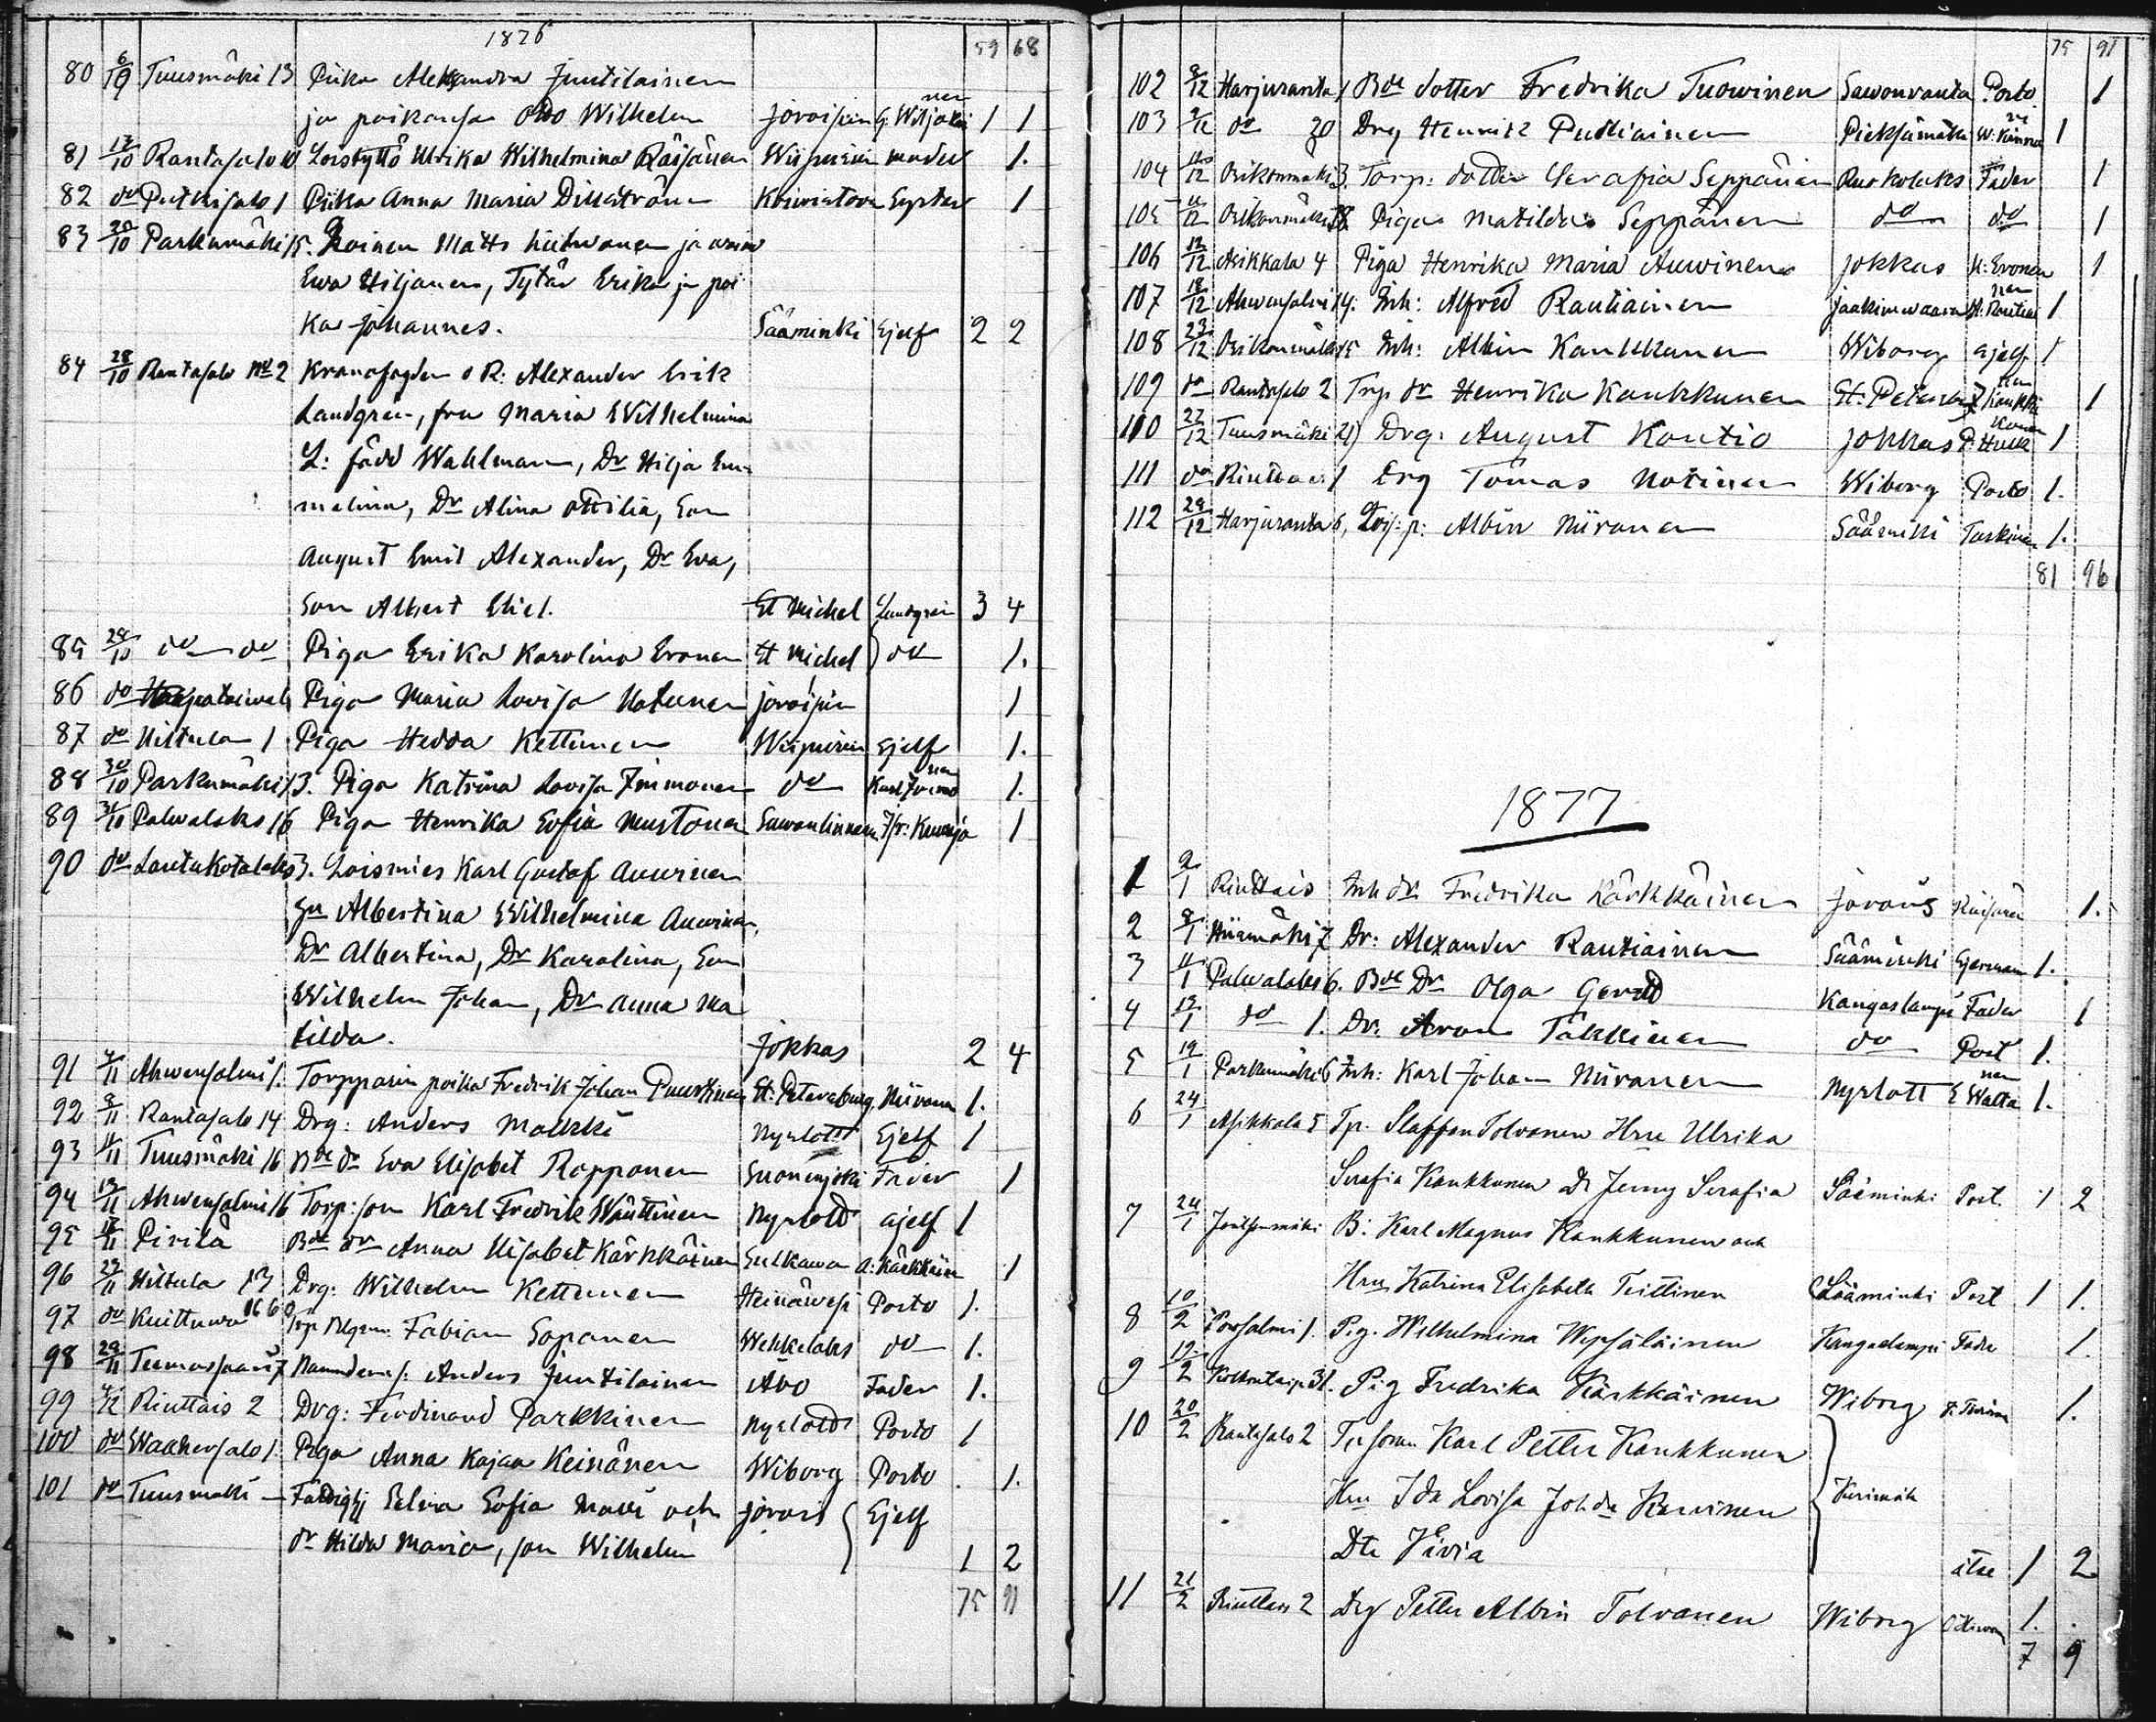 1876
59 68
80 6/10 Tuusmäki 13 Piika Aleksandra Juutilainen
ja poikansa Otto Wilhelm Joroisiin G. Wiljakainen 1 1
81 13/10 Rantasalo 10 Loistyttö Ulrika Wilhelmina Räisänen Wiipuriin moder 1.
82 do Putkisalo 1 Piika Anna Maria Dillström Koivistoon Syster 1
83 20/10 Parkumäki 15. Matts ja waimo
Ewa Hiljanen, Tytär Erika ja poi
ka Johannes. Sääminki Sjelf 2 2
84 28/10 Rantasalo No 2 Kronofogden o R: Alexander Erik
Landgrén, fru Maria Wilhelmina
L: född Wahlman, Dr Hilja Em
melina, Dr Alina Ottilia, Son
August Emil Alexander, Dr Eva,
Son Albert Eliel. St Michel Landgrén 3 4
85 28/10 do do Piga Erika Karolina Eronen St Michel do 1.
86 do Haapataival Piga Maria Lovisa Joroisiin 1
87 do Hiltula 1 Piga Hedda Kettunen Wiipuriin Sjelf 1.
88 30/10 Parkumäki 13. Piga Katrina Lovisa Immonen do Karl Immonen 1.
89 31/10 Palvalaks 16 Piga Henrika Sofia Mustonen Savonlinnan 1
90 do Lautakotalaks 3. Loismies Karl Gustaf Auvinen
Albertina Wilhelmina Auvinen,
Dr Albertina, Dr Karolina, Son
Wilhelm Johan, Dr Anna Ma
tilda. Jokkas 2 4
91 4/11 Ahvensalmi 1. Torpparin poika Fredrik Johan Puustinen St. Petersburg Niiranen 1.
92 8/11 Rantasalo 14 Drg: Anders Nyslott Sjelf 1
93 11/11 Tuusmäki 16 Bde dr Eva Elisabet Ropponen Suonenjoki Fader 1
94 13/11 Ahvensalmi 16 Torp: son Karl Fredrik Wänttinen Nyslott sjelf 1
95 18/11 Pirilä Bde dr Anna Elisabet Kärkkäinen Sulkawa A: Kärkkäinen 1
96 23/11 Hiltula 13 Drg: Wilhelm Kettunen Heinäwesi Porto 1.
97 do Fabian Sopanen Wehkelaks do 1.
98 29/11 Anders Juutilainen Åbo Fader 1.
99 4/12 Rinttais 2 Drg: Ferdinand Parkkinen Nyslott Porto 1
100 do Waahersalo 1. Piga Anna Kajsa Keinänen Wiborg Porto 1.
101 do Tuusmäki Sofia och Jorois Sjelf
dr Hilda Maria, son Wilhelm 1 2
75 91
75 91
102 9/12 Harjuranta 1 Bde dotter Fredrika Tuowinen Sawonranta Porto 1
103 9/12 do 20 Drg Henrik Putkiainen Pieksämäki 1
104 11/12 Oikonmäki 3. Torp: dotter Serafia Seppänen Ruokolaks Fader 1
105 11/12 Oikonmäki 18 Piga Matilda Seppänen do do 1
106 12/12 Asikkala 4 Piga Henrika Maria Auwinen Jokkas H: Eronen 1
107 18/12 Ahvensalmi 14. Inh: Alfred Rautiainen Jaakimwaara H: Rautiainen 1
108 23/12 Oikonmäki 15 Inh: Albin Kaukkanen Wiborg sjelf 1
109 do Rantasalo 2 Trp dr Henrika Kaukkunen St. Petersburg 1
110 27/12 Tuusmäki 21) Drg: August Kontio Jokkas 1
111 do 1 Drg Tomas Notinen Wiborg Porto 1.
112 29/12 Harjuranta 6, Albin Niiranen Sääminki Taskinen 1.
81 96
1877
1 2/1 Rinttais Inh dr Fredrika Kärkkäinen Jorois 1.
2 8/1 Hiismäki 7 Dr: Alexander Rautiainen Sääminki German 1.
3 11/1 Palvalaks 6. Bde Dr Olga Kangaslampi Fader 1
4 13/1 do 1. Dr: Aron do Post 1.
5 19/1 Parkumäki 6 Inh: Karl Johan Niiranen Nyslott 1.
6 24/1 Asikkala 5 Tp. Staffan Tolvanen Hru Ulrika
Serafia Kaukkunen Dr Jenny Serafia Sääminki Post. 1 2
7 24/1 B: Karl Magnus Kaukkunen och
Hru Katrina Elisabeth Teittinen Sääminki Post 1 1.
8 10/2 Porosalmi 1. Pig. Wilhelmina Wepsäläinen Kangaslampi Fader 1.
9 19/2 Pig Fredrika Kärkkäinen Wiborg 1.
10 20/2 Rantasalo 2 Karl Petter Kaukkunen
Hru Ida Lovisa Karvinen Kerimäki
Dtr itse 1 2
11 21/2 Rinttais 2 Drg Petter Albin Tolvanen Wiborg 1.
7 9